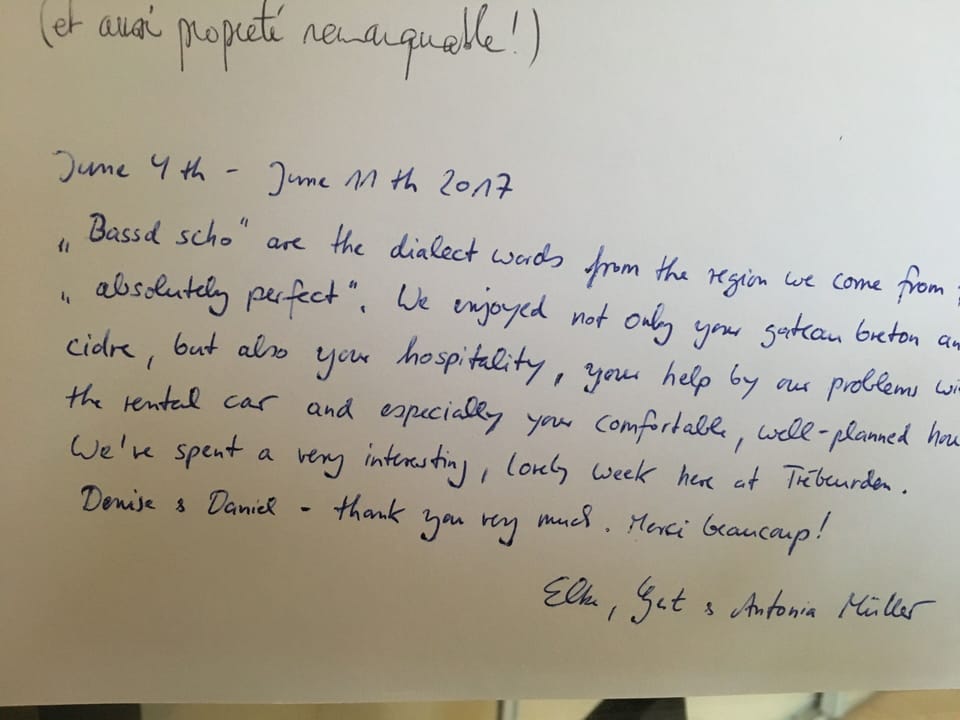 (et aussi propreté remarquable!)
June 4th - June 11th 2017
„Bassd scho" are the dialect words from the region we come from
„absolutely perfect". We enjoyed not only your gateau breton an
cidre, but also your hospitality, your help by our problems wi
the rental car and especially your comfortable, well-planned hou
We've spent a very interesting, lovely week here at Trébeurden.
Denise & Daniel - thank you very much. Merci beaucoup!
Elke, & Antonia Müller